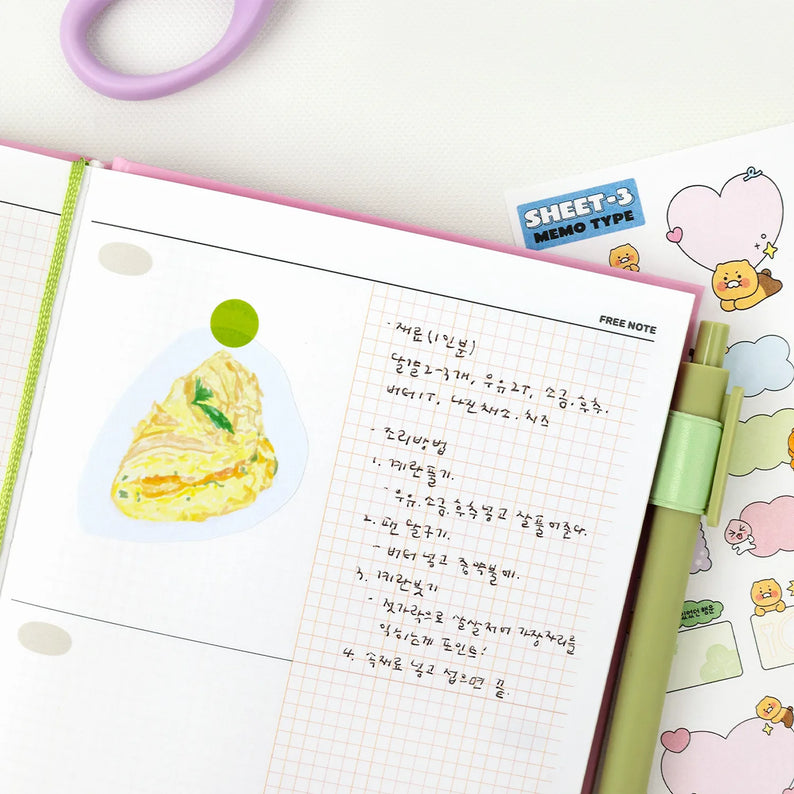 SHEET-3
MEMO TYPE
FREE NOTE
· 재료(1인분)
달걀2-3개, 우유2T, 소금.후추.
버터1T, 다진채소. 치즈
· 조리방법
1. 계란풀기.
- 우유.소금.후추넣고 잘풀어준다.
2. 팬 달구기.
- 버터 넣고 중약불에.
3. 계란붓기
- 젓가락으로 살살저어 가장자리를
익히는게 포인트!
4. 속재료 넣고 접으면 끝.